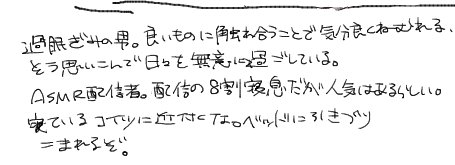 過眠ぎみの男。良いものに触れ合うことで気分良くねむれる、
そう思いこんで日々を無意に過ごしている。
ASMR配信者。配信の8割寝息だが人気はあるらしい。
寝ているコイツに近付くな。ベッドに引きずり
こまれるぞ。